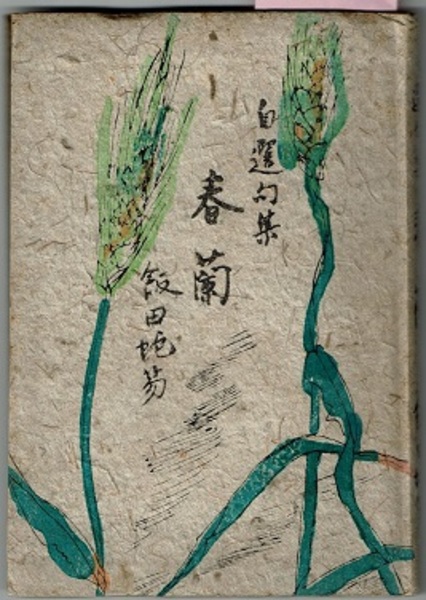 自選句集
春蘭
飯田蛇笏